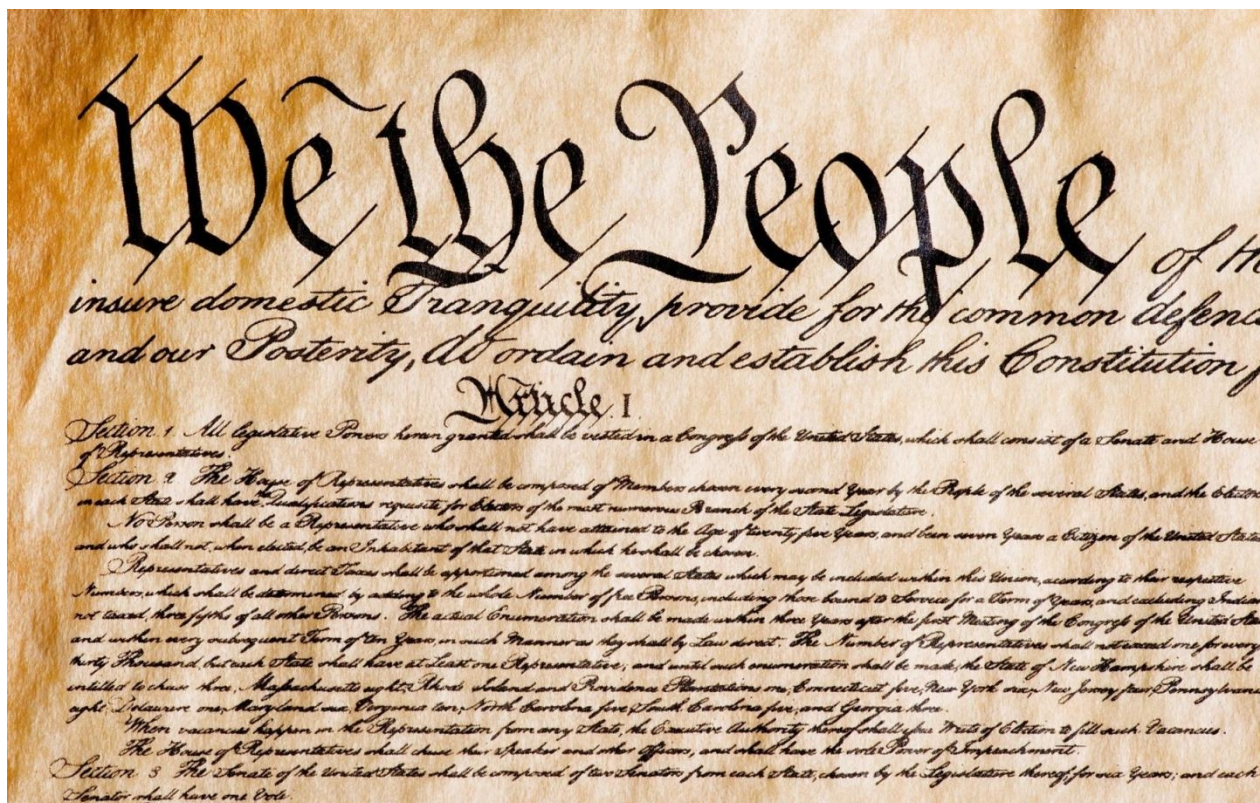 We the People of th
insure domestic Tranquility, provide for the common defenc
and our Posterity, do ordain and establish this Constitution f
Article. I.
Section 1 All legislative Powers herein granted shall be vested in a Congress of the United States, which shall consist of a Senate and House
of Representatives.
Section 2 The House of Representatives shall be composed of Members chosen every second Year by the People of the several States, and the Elector
in each State shall have the Qualifications requisite for Electors of the most numerous Branch of the State Legislature.
No Person shall be a Representative who shall not have attained to the Age of twenty five Years, and been seven Years a Citizen of the United States
and who shall not, when elected, be an Inhabitant of that State in which he shall be chosen.
Representatives and direct Taxes shall be apportioned among the several States which may be included within this Union, according to their respective
Numbers, which shall be determined by adding to the whole Number of free Persons, including those bound to Service for a Term of Years, and excluding Indian
not taxed, three fifths of all other Persons. The actual Enumeration shall be made within three Years after the first Meeting of the Congress of the United Sta
and within every subsequent Term of ten Years, in such Manner as they shall by Law direct. The Number of Representatives shall not exceed one for every
thirty Thousand, but each State shall have at Least one Representative; and until such enumeration shall be made, the State of New Hampshire shall be
entitled to chuse three, Massachusetts eight, Rhode Island and Providence Plantations one, Connecticut five, New York six, New Jersey four, Pennsylvan
eight, Delaware one, Maryland six, Virginia ten, North Carolina five, South Carolina five, and Georgia three.
When vacancies happen in the Representation from any State, the Executive Authority thereof shall issue Writs of Election to fill such Vacancies.
The House of Representatives shall chuse their Speaker and other Officers; and shall have the sole Power of Impeachment.
Section 3 The Senate of the United States shall be composed of two Senators from each State, chosen by the Legislature thereof, for six Years; and each
Senator shall have one Vote.